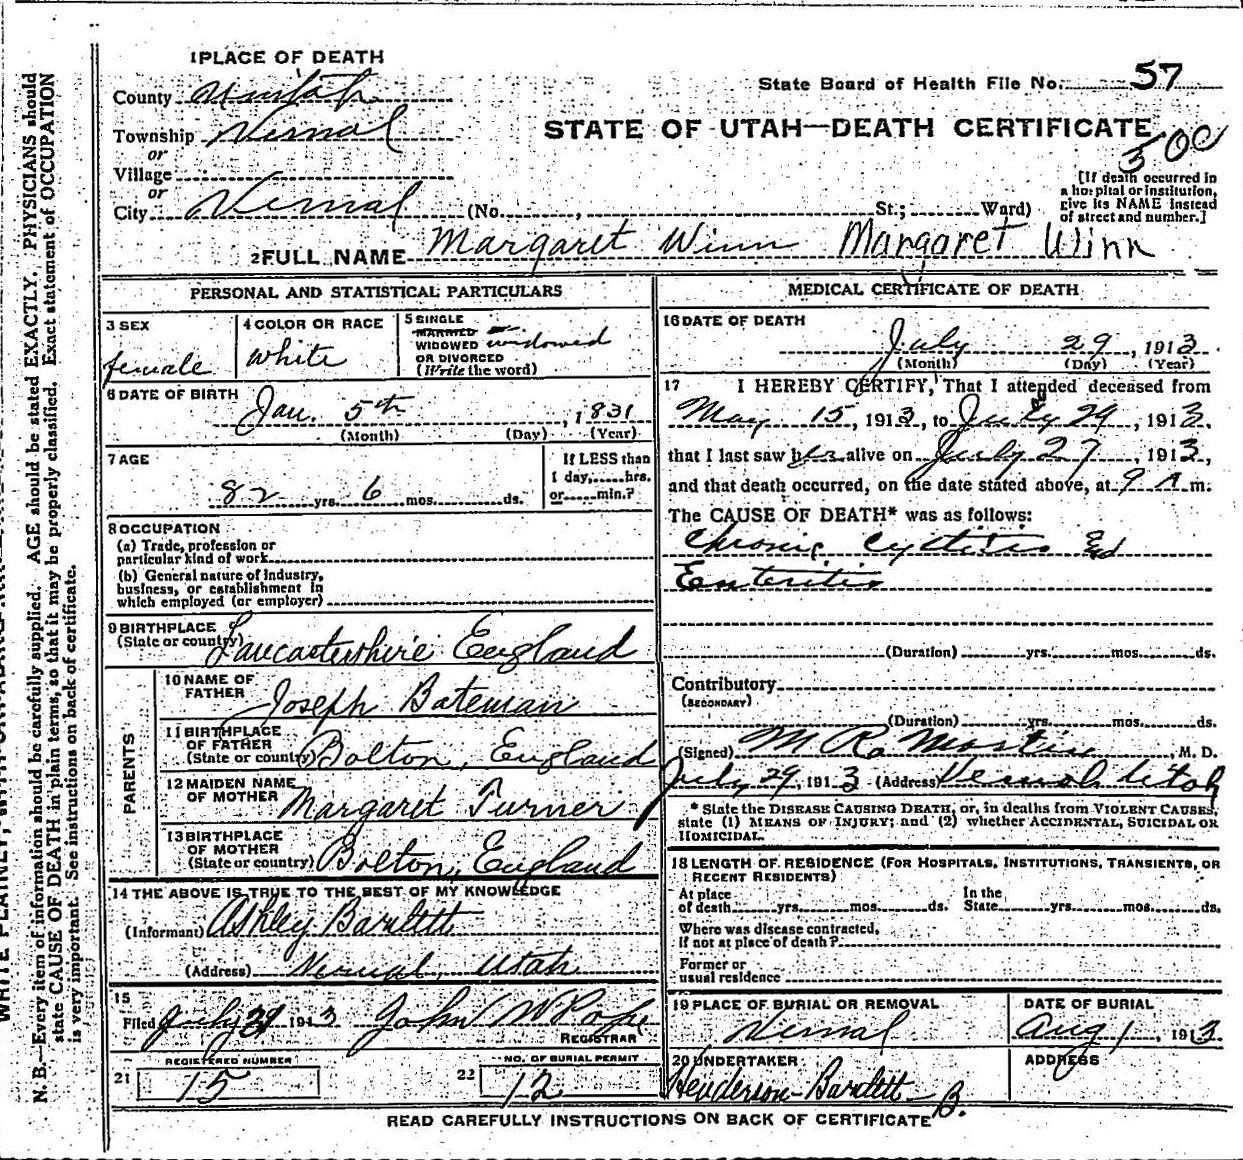 1 PLACE OF DEATH
County Uintah
State Board of Health File No. 57
Township Vernal
or
Village
or
City Vernal (No. , St.; Ward)
STATE OF UTAH—DEATH CERTIFICATE
500
[If death occurred in a hospital or institution, give its NAME instead of street and number.]
2 FULL NAME Margaret Winn Margaret Winn
PERSONAL AND STATISTICAL PARTICULARS
3 SEX
female
4 COLOR OR RACE
White
5 SINGLE
MARRIED
WIDOWED widowed
OR DIVORCED
(Write the word)
6 DATE OF BIRTH
Jan. 5th, 1831
(Month) (Day) (Year)
7 AGE
82 yrs. 6 mos. ds.
If LESS than
1 day, hrs.
or min.?
8 OCCUPATION
(a) Trade, profession or
particular kind of work
(b) General nature of industry,
business, or establishment in
which employed (or employer)
9 BIRTHPLACE
(State or country) Lancastershire England
PARENTS
10 NAME OF
FATHER Joseph Bateman
11 BIRTHPLACE
OF FATHER
(State or country) Bolton, England
12 MAIDEN NAME
OF MOTHER Margaret Turner
13 BIRTHPLACE
OF MOTHER
(State or country) Bolton, England
14 THE ABOVE IS TRUE TO THE BEST OF MY KNOWLEDGE
(Informant) Ashley Bartlett
(Address) Vernal, Utah
15
Filed July 31 1913 John N Pope
REGISTRAR
REGISTERED NUMBER
21 15
NO. OF BURIAL PERMIT
22 12
MEDICAL CERTIFICATE OF DEATH
16 DATE OF DEATH
July 29, 1913
(Month) (Day) (Year)
17 I HEREBY CERTIFY, That I attended deceased from
May 15, 1913, to July 29, 1913.
that I last saw her alive on July 27, 1913,
and that death occurred, on the date stated above, at 9 A m.
The CAUSE OF DEATH* was as follows:
Chronic Cystitis
Enteritis
(Duration) yrs. mos. ds.
Contributory
(SECONDARY)
(Duration) yrs. mos. ds.
(Signed) M R Mostin, M. D.
July 29, 1913 (Address) Vernal Utah
* State the DISEASE CAUSING DEATH, or, in deaths from VIOLENT CAUSES,
state (1) MEANS OF INJURY; and (2) whether ACCIDENTAL, SUICIDAL OR
HOMICIDAL.
18 LENGTH OF RESIDENCE (FOR HOSPITALS, INSTITUTIONS, TRANSIENTS, OR
RECENT RESIDENTS)
At place
of death yrs. mos. ds.
In the
State yrs. mos. ds.
Where was disease contracted,
If not at place of death?
Former or
usual residence
19 PLACE OF BURIAL OR REMOVAL
Vernal
DATE OF BURIAL
Aug 1, 1913
20 UNDERTAKER
Henderson-Bartlett
ADDRESS
B.
READ CAREFULLY INSTRUCTIONS ON BACK OF CERTIFICATE
N. B.—Every item of information should be carefully supplied. AGE should be stated EXACTLY. PHYSICIANS should
state CAUSE OF DEATH in plain terms, so that it may be properly classified. Exact statement of OCCUPATION
is very important. See instructions on back of certificate.